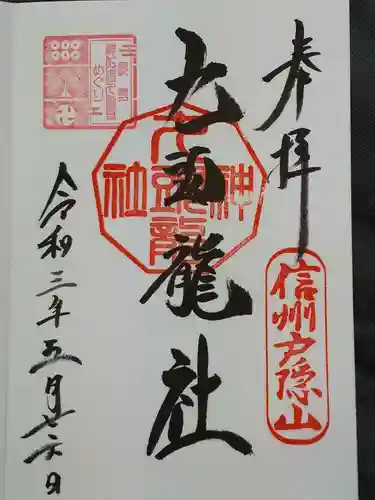 奉拝
信州戸隠山
九頭龍社
九頭龍神社
令和三年五月廿六日